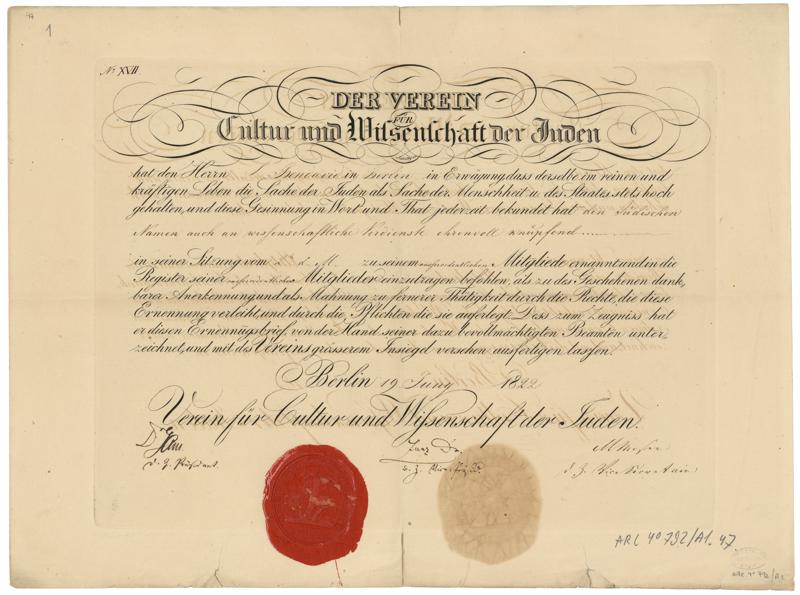 1
No XVII
DER VEREIN
FÜR
Cultur und Wissenschaft der Juden
hat den Herrn Bendavid in Berlin in Erwägung dass derselbe im reinen und
kräftigen Leben die Sache der Juden als Sache der Menschheit u. des Staates stets hoch
gehalten, und diese Gesinnung in Wort und That jederzeit bekundet hat den Jüdischen
Namen auch an wissenschaftliche Verdienste ehrenvoll knüpfend
in seiner Sitzung vom d. M. zu seinem ausserordentlichen Mitgliede ernannt und in die
Register seiner ausserordentlichen Mitglieder einzutragen befohlen, als zu des Geschehenen dank-
barer Anerkennung und als Mahnung zu fernerer Thätigkeit durch die Rechte, die diese
Ernennung verleiht und durch die Pflichten die sie auferlegt. Dess zum Zeugniss hat
er diesen Ernennungsbrief von der Hand seiner dazu bevollmächtigten Beamten unter-
zeichnet, und mit des Vereins grösserem Insiegel versehen ausfertigen lassen.
Berlin 19 Juny 1822
Verein für Cultur und Wissenschaft der Juden.
Dr Gans Zunz Dr. M Moser
d. Z. Präsident. d. Z. Vice Präs. d. Z. Vice Secretair
ARC 4o 792/A1.47
ARC 4o 792/A1